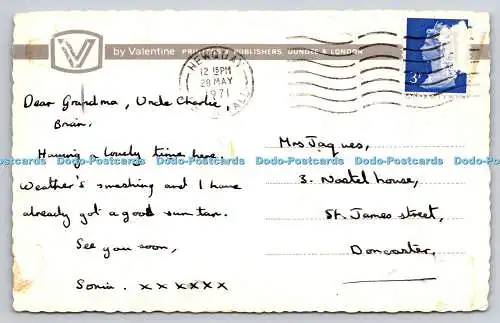 V
by Valentine PRINTERS & PUBLISHERS, DUNDEE & LONDON
NEWQUAY
12 15PM
28 MAY
1971
3P
Dear Grandma, Uncle Charlie,
Brian.
Having a lovely time here.
Weather's smashing and I have
already got a good sun tan.
See you soon,
Sonia. x x x x x x
Mrs Jaques,
3. Nostel house,
St. James street,
Doncaster.
Dodo-Postcards Dodo-Postcards Dodo-Postcards Dodo-Postcards Dodo-Postcards